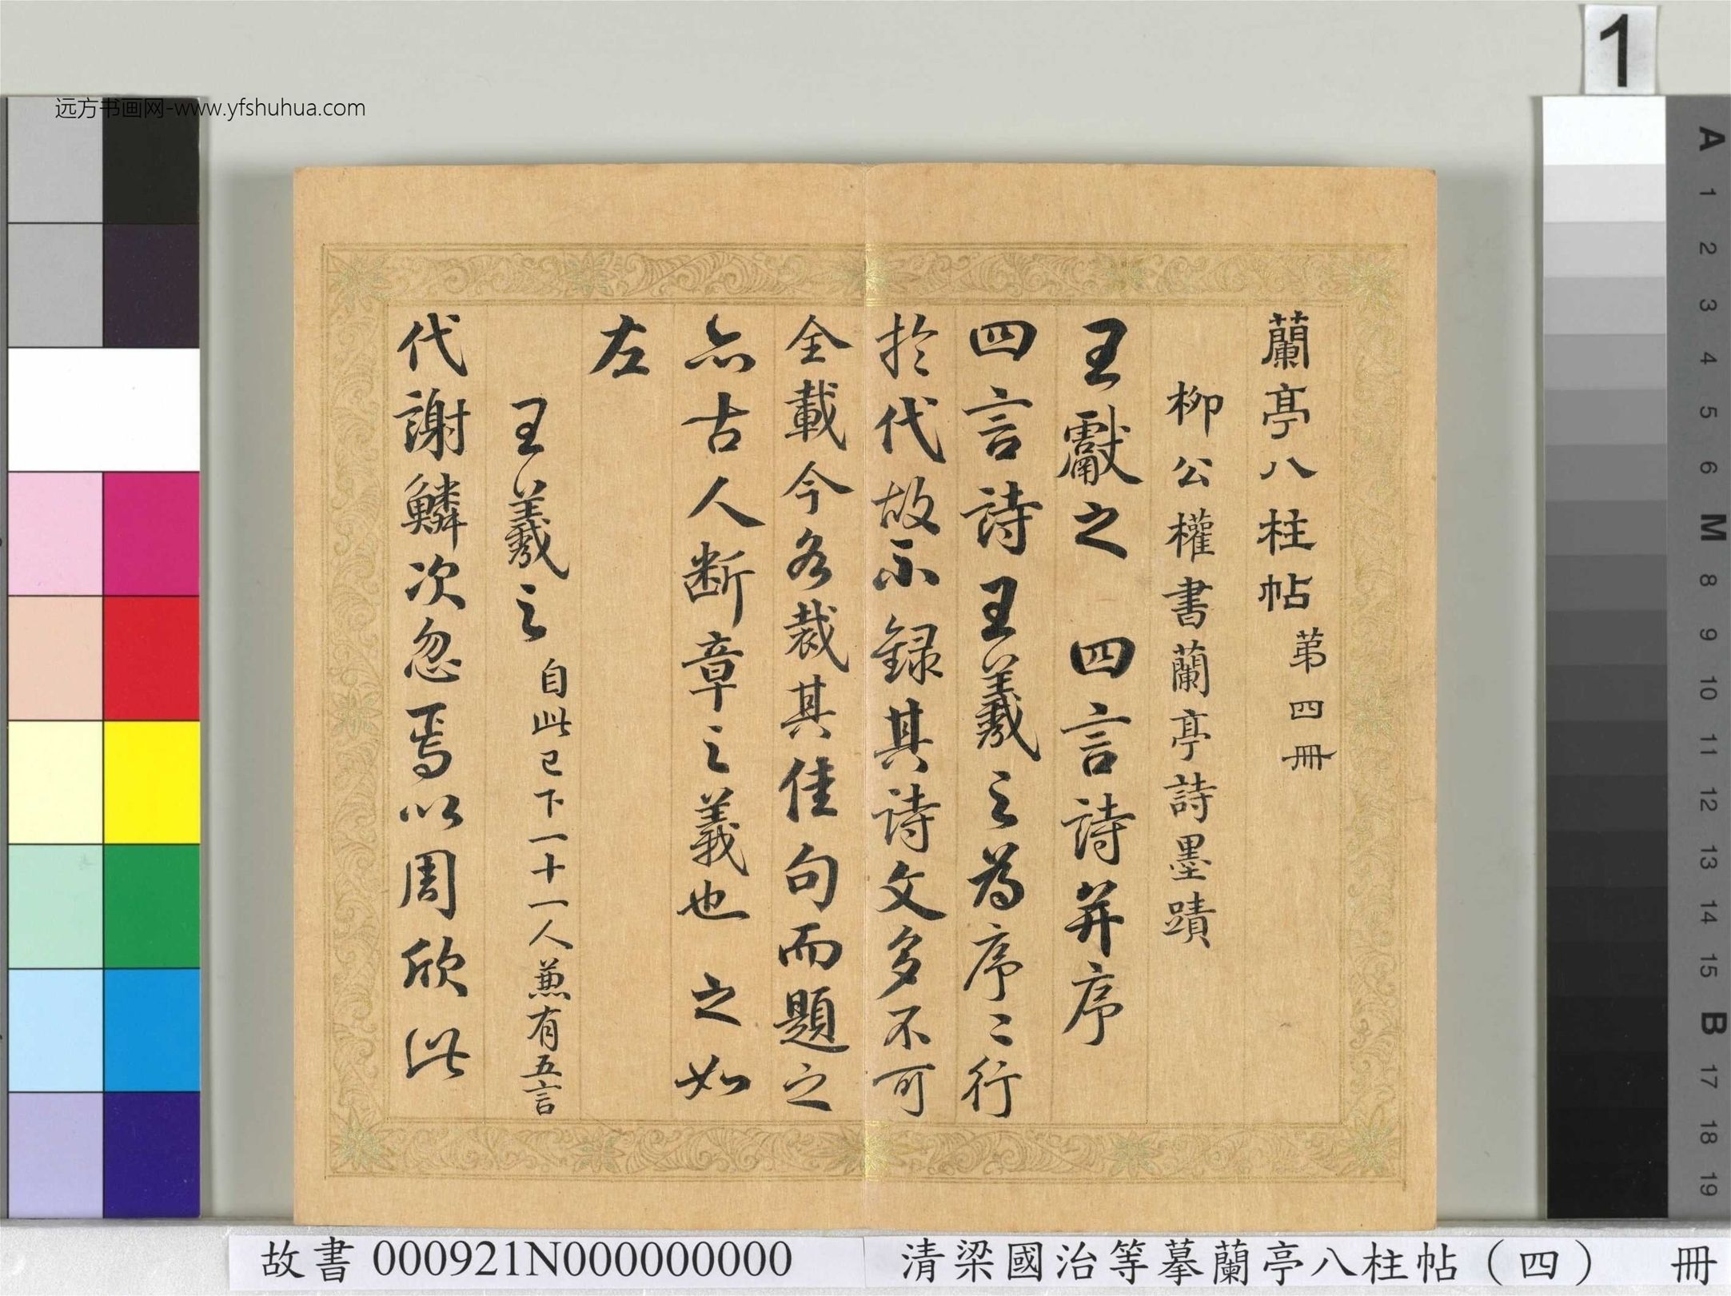 远方书画网-www.yfshuhua.com
1
蘭亭八柱帖 第四冊
柳公權書蘭亭詩墨蹟
王獻之 四言詩并序
四言詩王羲之為序序行
於代故不錄其詩文多不可
全載今各裁其佳句而題之
亦古人断章之義也 之如
左
王羲之 自此已下一十一人兼有五言
代謝鱗次忽焉以周欣此
A
1
2
3
4
5
6
M
8
9
10
11
12
13
14
15
B
17
18
19
故書 000921N000000000
清梁國治等摹蘭亭八柱帖（四） 冊